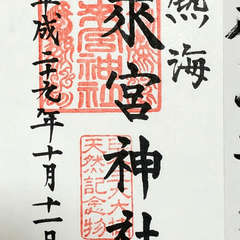 熱海
來宮神社
平成二十九年十月十一日
來宮神社
天然記念物